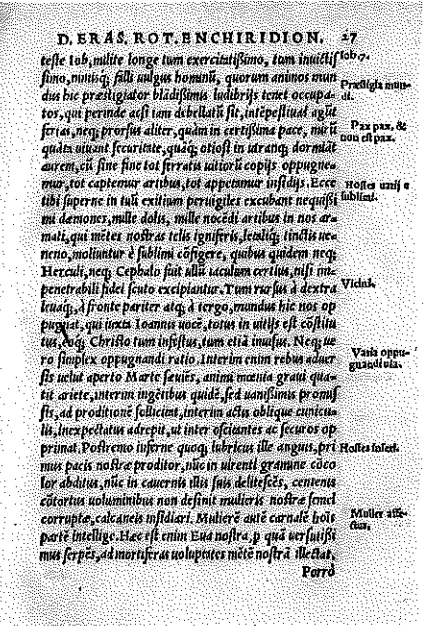 D. ERAS. ROT. ENCHIRIDION. 27
teste Iob, milite longe tum exercitatißimo, tum inuictis
simo, nimisq; falli uulgus hominũ, quorum animos mun
dus hic præstigiator blãdißimis ludibrijs tenet occupa-
tos, qui perinde acsi iam debellatũ sit, intẽpestiuas agũt
ferias, neq; prorsus aliter, quàm in certißima pace, mirũ
quãta uiuant securitate, quàq; otiosi in utranq; dormiãt
aurem, cũ sine fine tot ferratis uitiorũ copijs oppugne-
mur, tot captemur artibus, tot appetamur insidijs. Ecce
tibi superne in tuũ exitium peruigiles excubant nequißi
mi dæmones, mille dolis, mille nocẽdi artibus in nos ar-
mati, qui mẽtes nostras telis igniferis, letaliq; tinctis ue-
neno, moliuntur è sublimi cõfigere, quibus quidem neq;
Herculi, neq; Cephalo fuit ullũ iaculum certius, nisi im-
penetrabili fidei scuto excipiantur. Tum rursus à dextra
leuaq;, à fronte pariter atq; à tergo, mundus hic nos op
pugnat, qui iuxta Ioannis uocẽ, totus in uitijs est cõstitu
tus, eoq; Christo tum infestus, tum etiã inuisus. Neq; ue
ro simplex oppugnandi ratio. Interim enim rebus aduer
sis uelut aperto Marte sæuiẽs, animi mœnia graui qua-
tit ariete, interim ingẽtibus quidẽ, sed uanißimis promis
sis, ad proditionẽ sollicitat, interim actis oblique cunicu-
lis, inexpectatus adrepit, ut inter oscitantes ac securos op
primat. Postremo inferne quoq; lubricus ille anguis, pri
mus pacis nostræ proditor, nũc in uirenti gramine cõco
lor abditus, nũc in cauernis illis suis delitescẽs, centenis
cõtortus uoluminibus non desinit mulieris nostræ semel
corruptæ, calcaneis insidiari. Mulierẽ autẽ carnalẽ hoĩs
partẽ intellige. Hæc est enim Eua nostra, p quã uersutißi
mus serpẽs, ad mortiferas uoluptates mẽtẽ nostrã illectat,
Porrò
Iob. 7.
Præstigia mun-
di.
Pax pax, &
non est pax.
Hostes uarij è
sublimi.
Vicini.
Varia oppu-
gnandi uia.
Hostes inferi.
Mulier affe-
ctus.